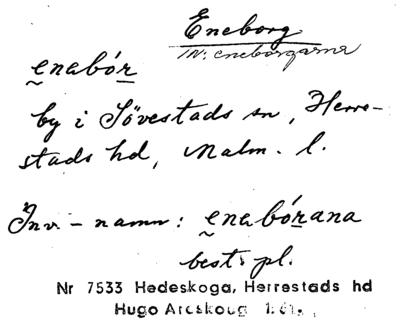 Eneborg
inv: eneborgarna
enabór
by i Sövestads sn, Herre-
stads hd, Malm. l.
Inv-namn: enabórana
best. pl.
Nr 7533 Hedeskoga, Herrestads hd
Hugo Areskoug